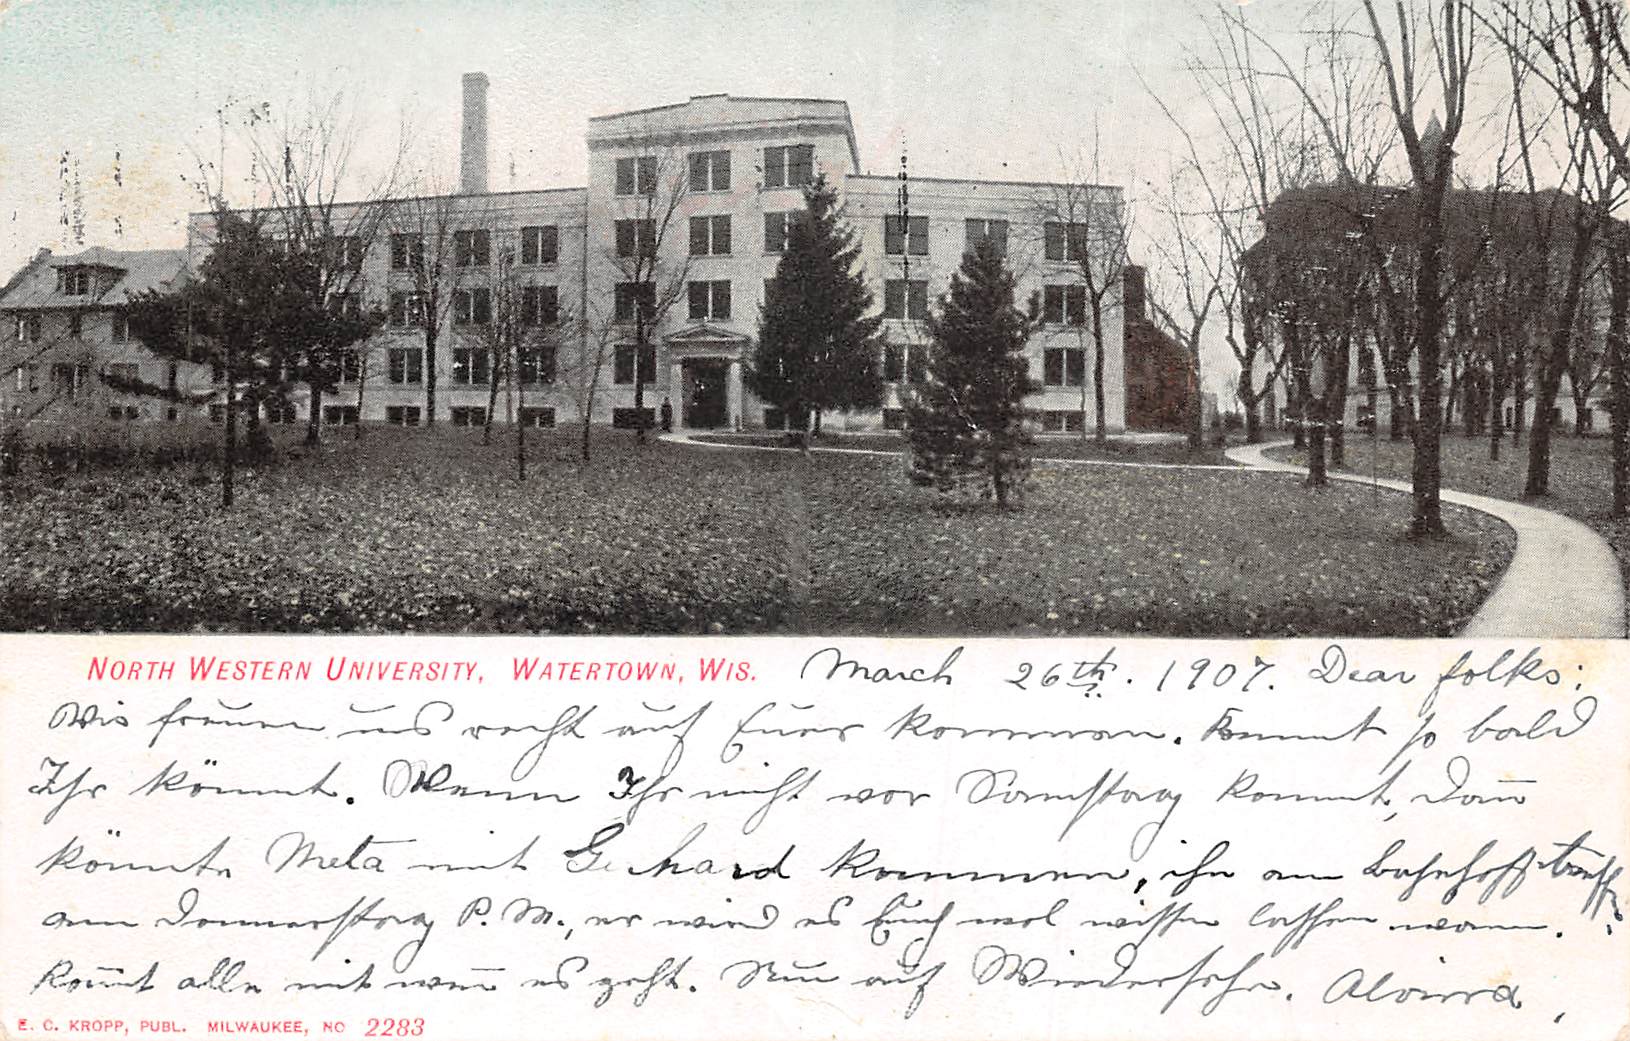 NORTH WESTERN UNIVERSITY, WATERTOWN, WIS. March 26th. 1907. Dear folks:
Wir freuen uns recht auf Euer kommen. Kommt so bald
Ihr könnt. Wenn Ihr nicht vor Samstag kommt, dan̄
könnte Meta mit Gerhard kommen, ihn am Bahnhof treffen
am Donnerstag P. M., er wird es Euch wol wissen lassen wann.
Kom̄t alle mit wen̄ es geht. Nun auf Wiedersehn. Alvina,
E. C. KROPP, PUBL. MILWAUKEE, NO 2283